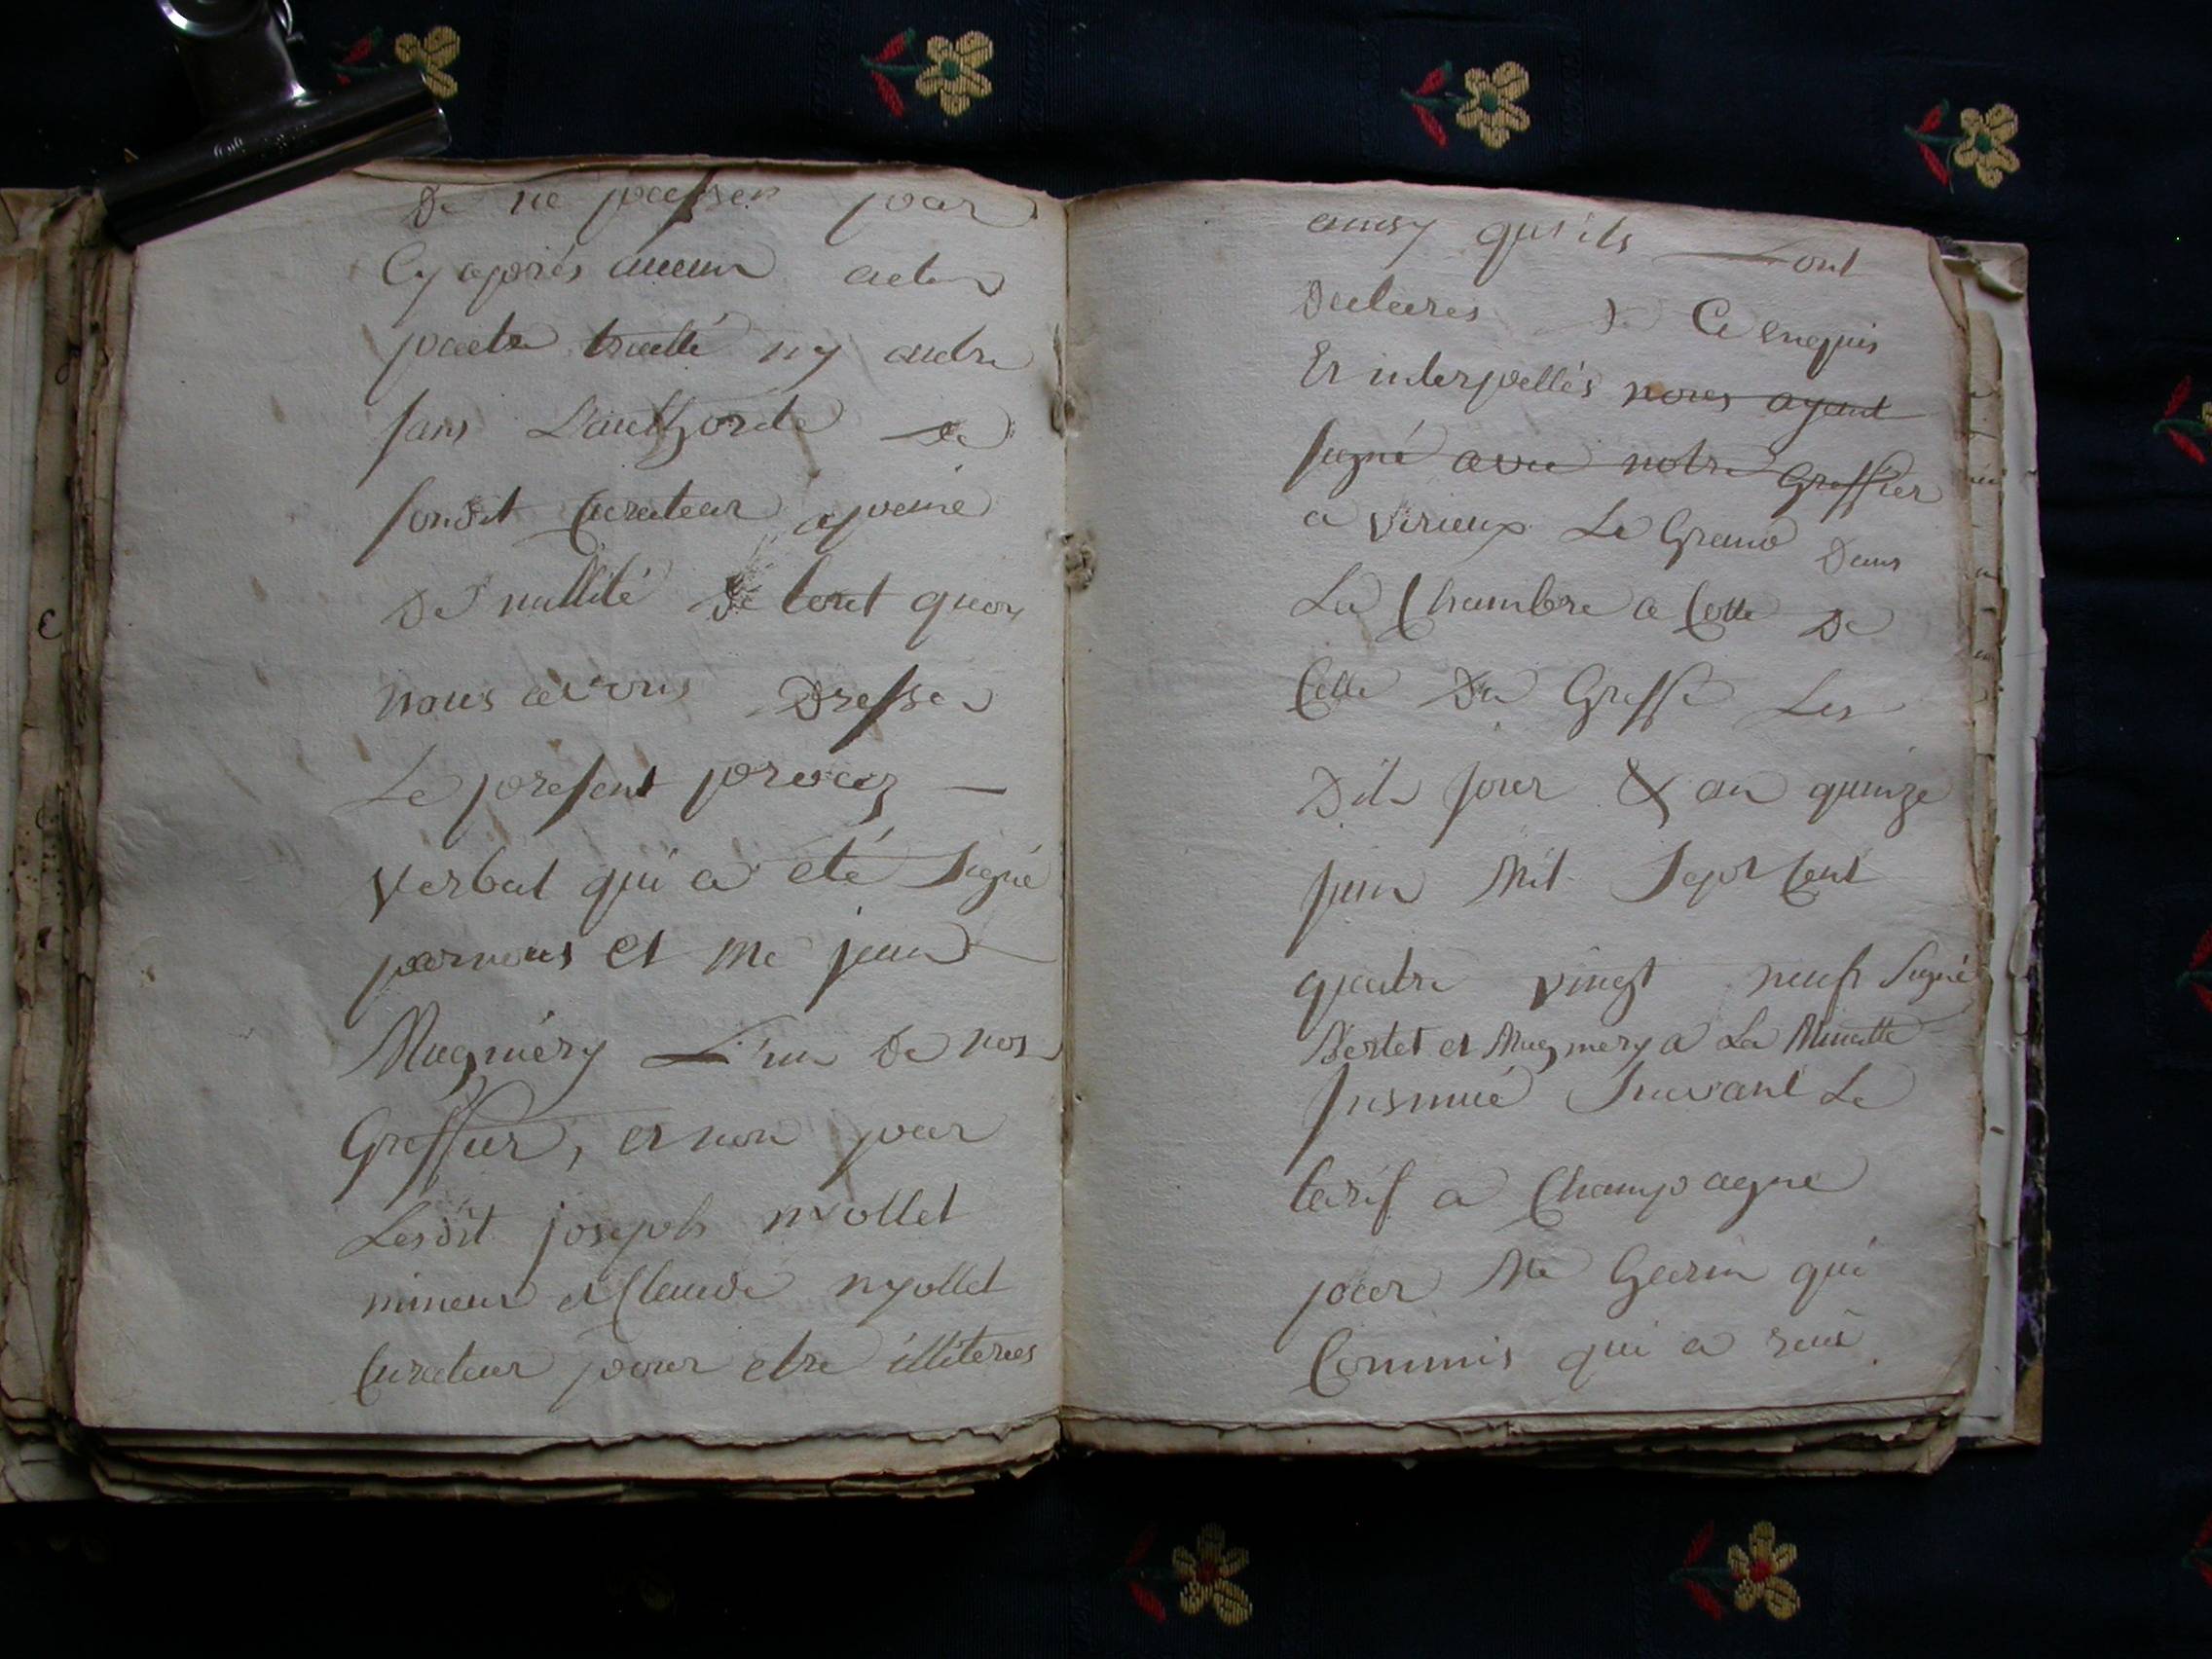 De ne passer par
Cy aprés aucun acte
pacte traitté ny autre
sans L'authorité de
sondit Curateur a peine
De nullité de tout quoy
nous avons Dressé
Le present procez —
Verbal qui a eté signé
par nous et Me jean
Mugniéry L'un De nos
Greffier, et non par
Lesdit joseph myollet
mineur et Claude myollet
Curateur pour etre illiteres
ainsy qu'ils L'ont
Declares De Ce enquis
Et interpellés nous ayant
signé avec notre Greffier
a Virieux Le Grand Dans
La Chambre a Cotte De
Celle Du Greffe Les
Dits jour & an quinze
juin Mil Sept Cent
quatre vingt neuf Signé
Bertet et Mugniery a La Minutte
Insinué Suivant Le
tarif a Champagne
par Me Garin qui
Commis qui a reçu